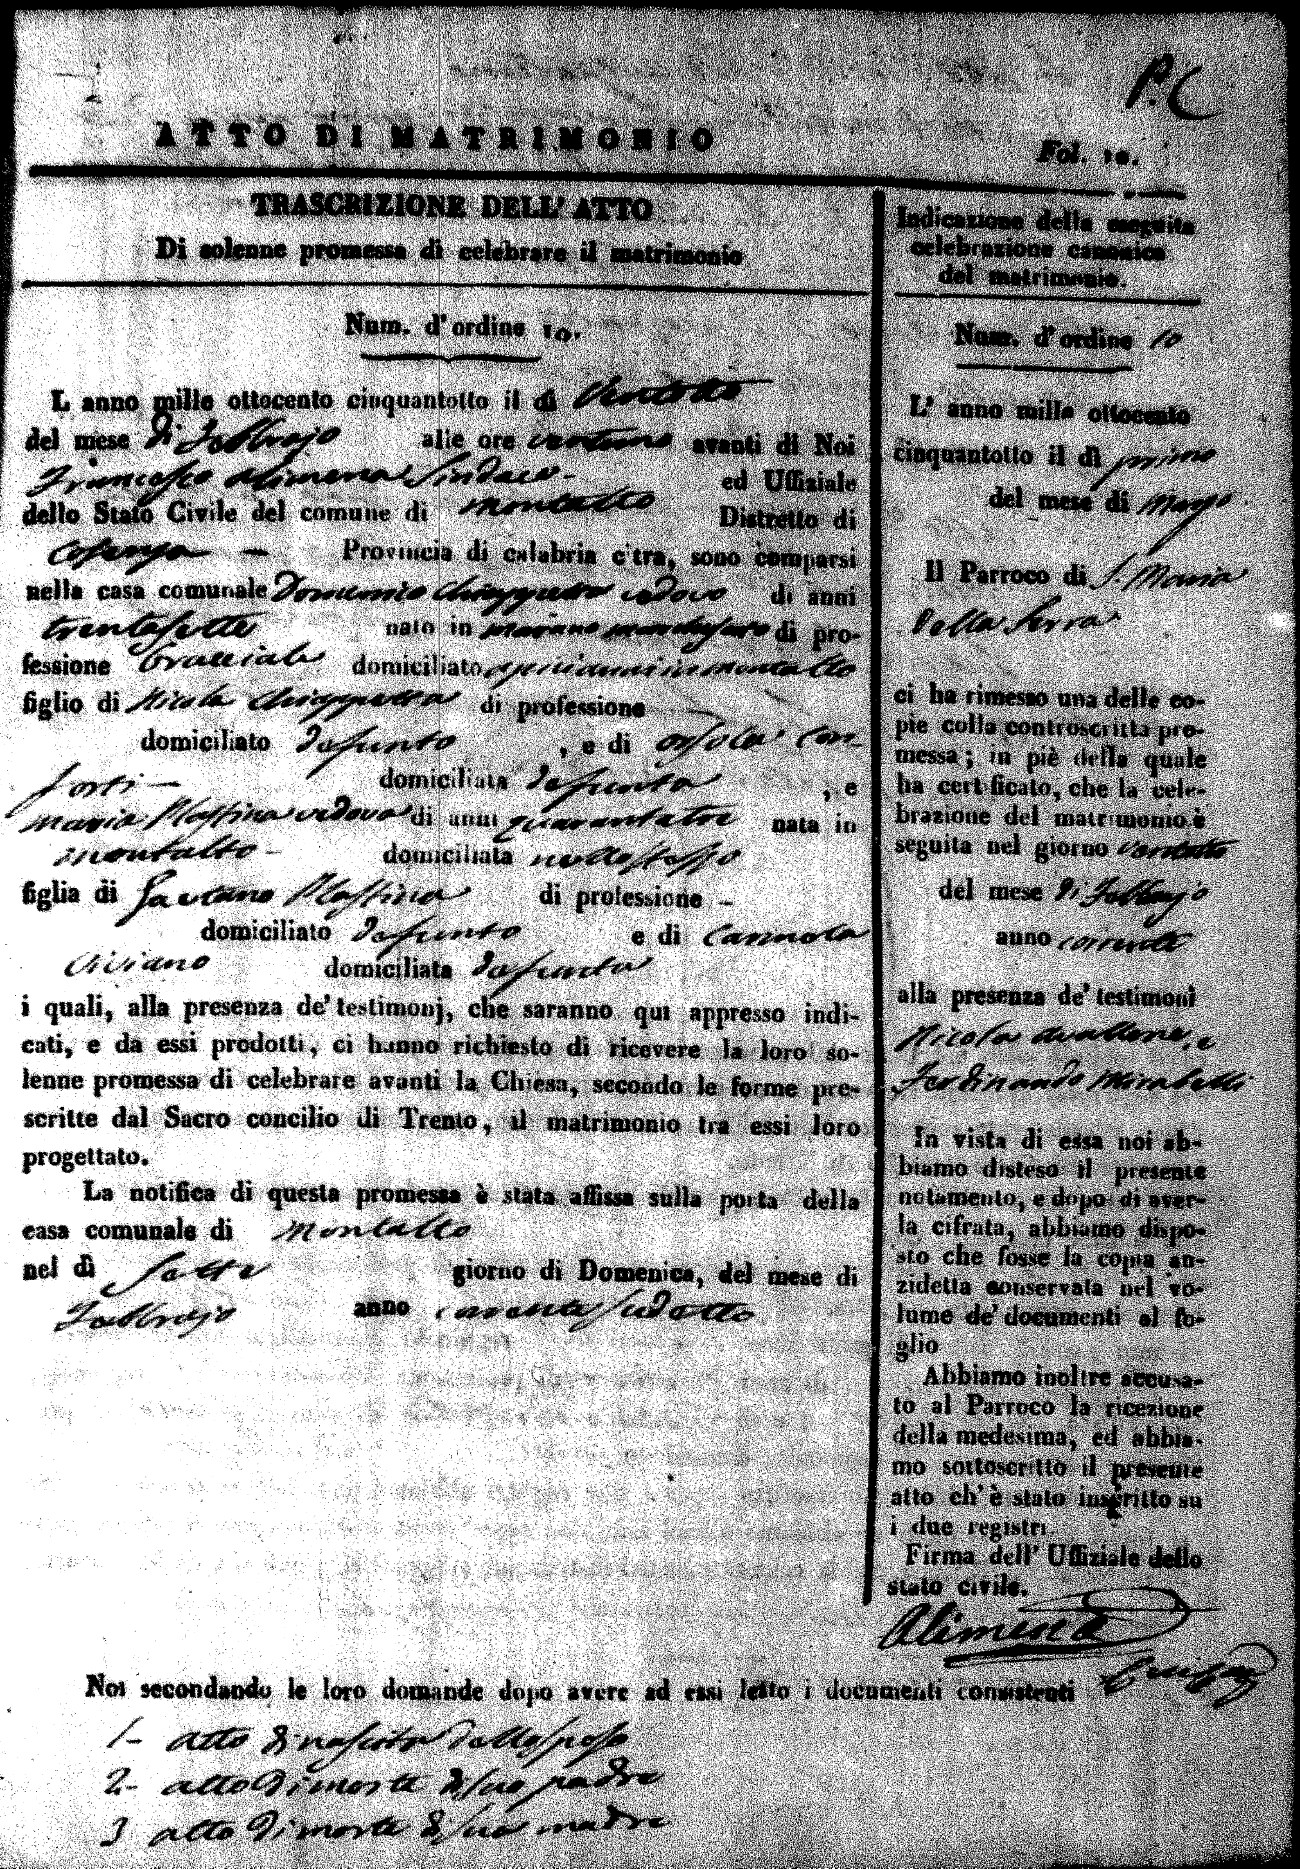 P. C
ATTO DI MATRIMONIO
Fol. 10.
TRASCRIZIONE DELL' ATTO
Di solenne promessa di celebrare il matrimonio
Num. d' ordine 10.
L anno mille ottocento cinquantotto il dì Ventotto
del mese di Febbrajo alle ore ventuno avanti di Noi
Francesco Alimena Sindaco - ed Uffiziale
dello Stato Civile del comune di Montalto Distretto di
Cosenza — Provincia di calabria citra, sono comparsi
nella casa comunale Domenico Chiappetta vedovo di anni
trentasette nato in Marano Marchesato di pro-
fessione bracciale domiciliato in Montalto
figlio di Nicola Chiappetta di professione
domiciliato defunto , e di Orsola Con-
forti — domiciliata defunta , e
Maria Messina vedova di anni quarantatre nata in
Montalto - domiciliata nello stesso
figlia di Gaetano Messina di professione –
domiciliato defunto e di Carmela
Viviano domiciliata defunta
i quali, alla presenza de' testimonj, che saranno qui appresso indi-
cati, e da essi prodotti, ci hanno richiesto di ricevere la loro so-
lenne promessa di celebrare avanti la Chiesa, secondo le forme pre-
scritte dal Sacro concilio di Trento, il matrimonio tra essi loro
progettato.
La notifica di questa promessa è stata affissa sulla porta della
casa comunale di Montalto
nel dì Sette giorno di Domenica, del mese di
Febbrajo anno corrente sudetto
Indicazione della eseguita
celebrazione canonica
del matrimonio.
Num. d' ordine 10
L' anno mille ottocento
cinquantotto il dì primo
del mese di Marzo
Il Parroco di S. Maria
della Serra
ci ha rimesso una delle co-
pie colla controscritta pro-
messa; in piè della quale
ha certificato, che la cele-
brazione del matrimonio è
seguita nel giorno ventotto
del mese di Febbrajo
anno corrente
alla presenza de' testimoni
Nicola Avallone, e
Ferdinando Mirabelli
In vista di essa noi ab-
biamo disteso il presente
notamento, e dopo di aver-
la cifrata, abbiamo dispo-
sto che fosse la copia an-
zidetta conservata nel vo-
lume de' documenti al fo-
glio
Abbiamo inoltre accusa-
to al Parroco la ricezione
della medesima, ed abbia-
mo sottoscritto il presente
atto ch' è stato inscritto su
i due registri.
Firma dell' Uffiziale dello
stato civile.
Alimena
Noi secondando le loro domande dopo avere ad essi letto i documenti consistenti
1- atto di nascita dello sposo
2- atto di morte di suo padre
3 atto di morte di sua madre